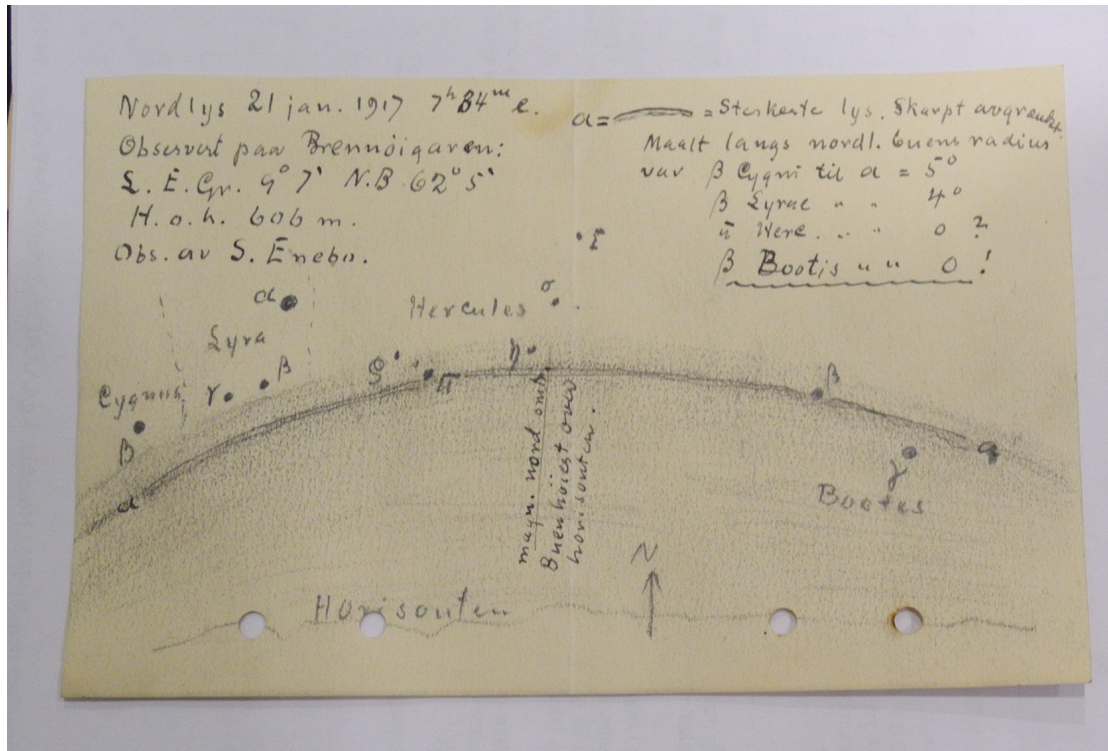 Nordlys 21 jan. 1917 7h 34m e.
Observert paa Brennöigaren:
L. E. Gr. 9° 7' N.B. 62° 5'
H. o. h. 606 m.
Obs. av S. Enebo.
a = = Sterkeste lys. Skarpt avgrenset.
Maalt langs nordl. buens radius
var β Cygni til a = 5°
β Lyrae " " 4°
π Herc. " " 0 ?
β Bootis " " 0 !
τ
α
Hercules σ
Lyra
Cygnus γ β θ π η β
β
a a
γ
Bootes
magn. nord omtr.
Buen höiest over
horisonten.
N
Horisonten